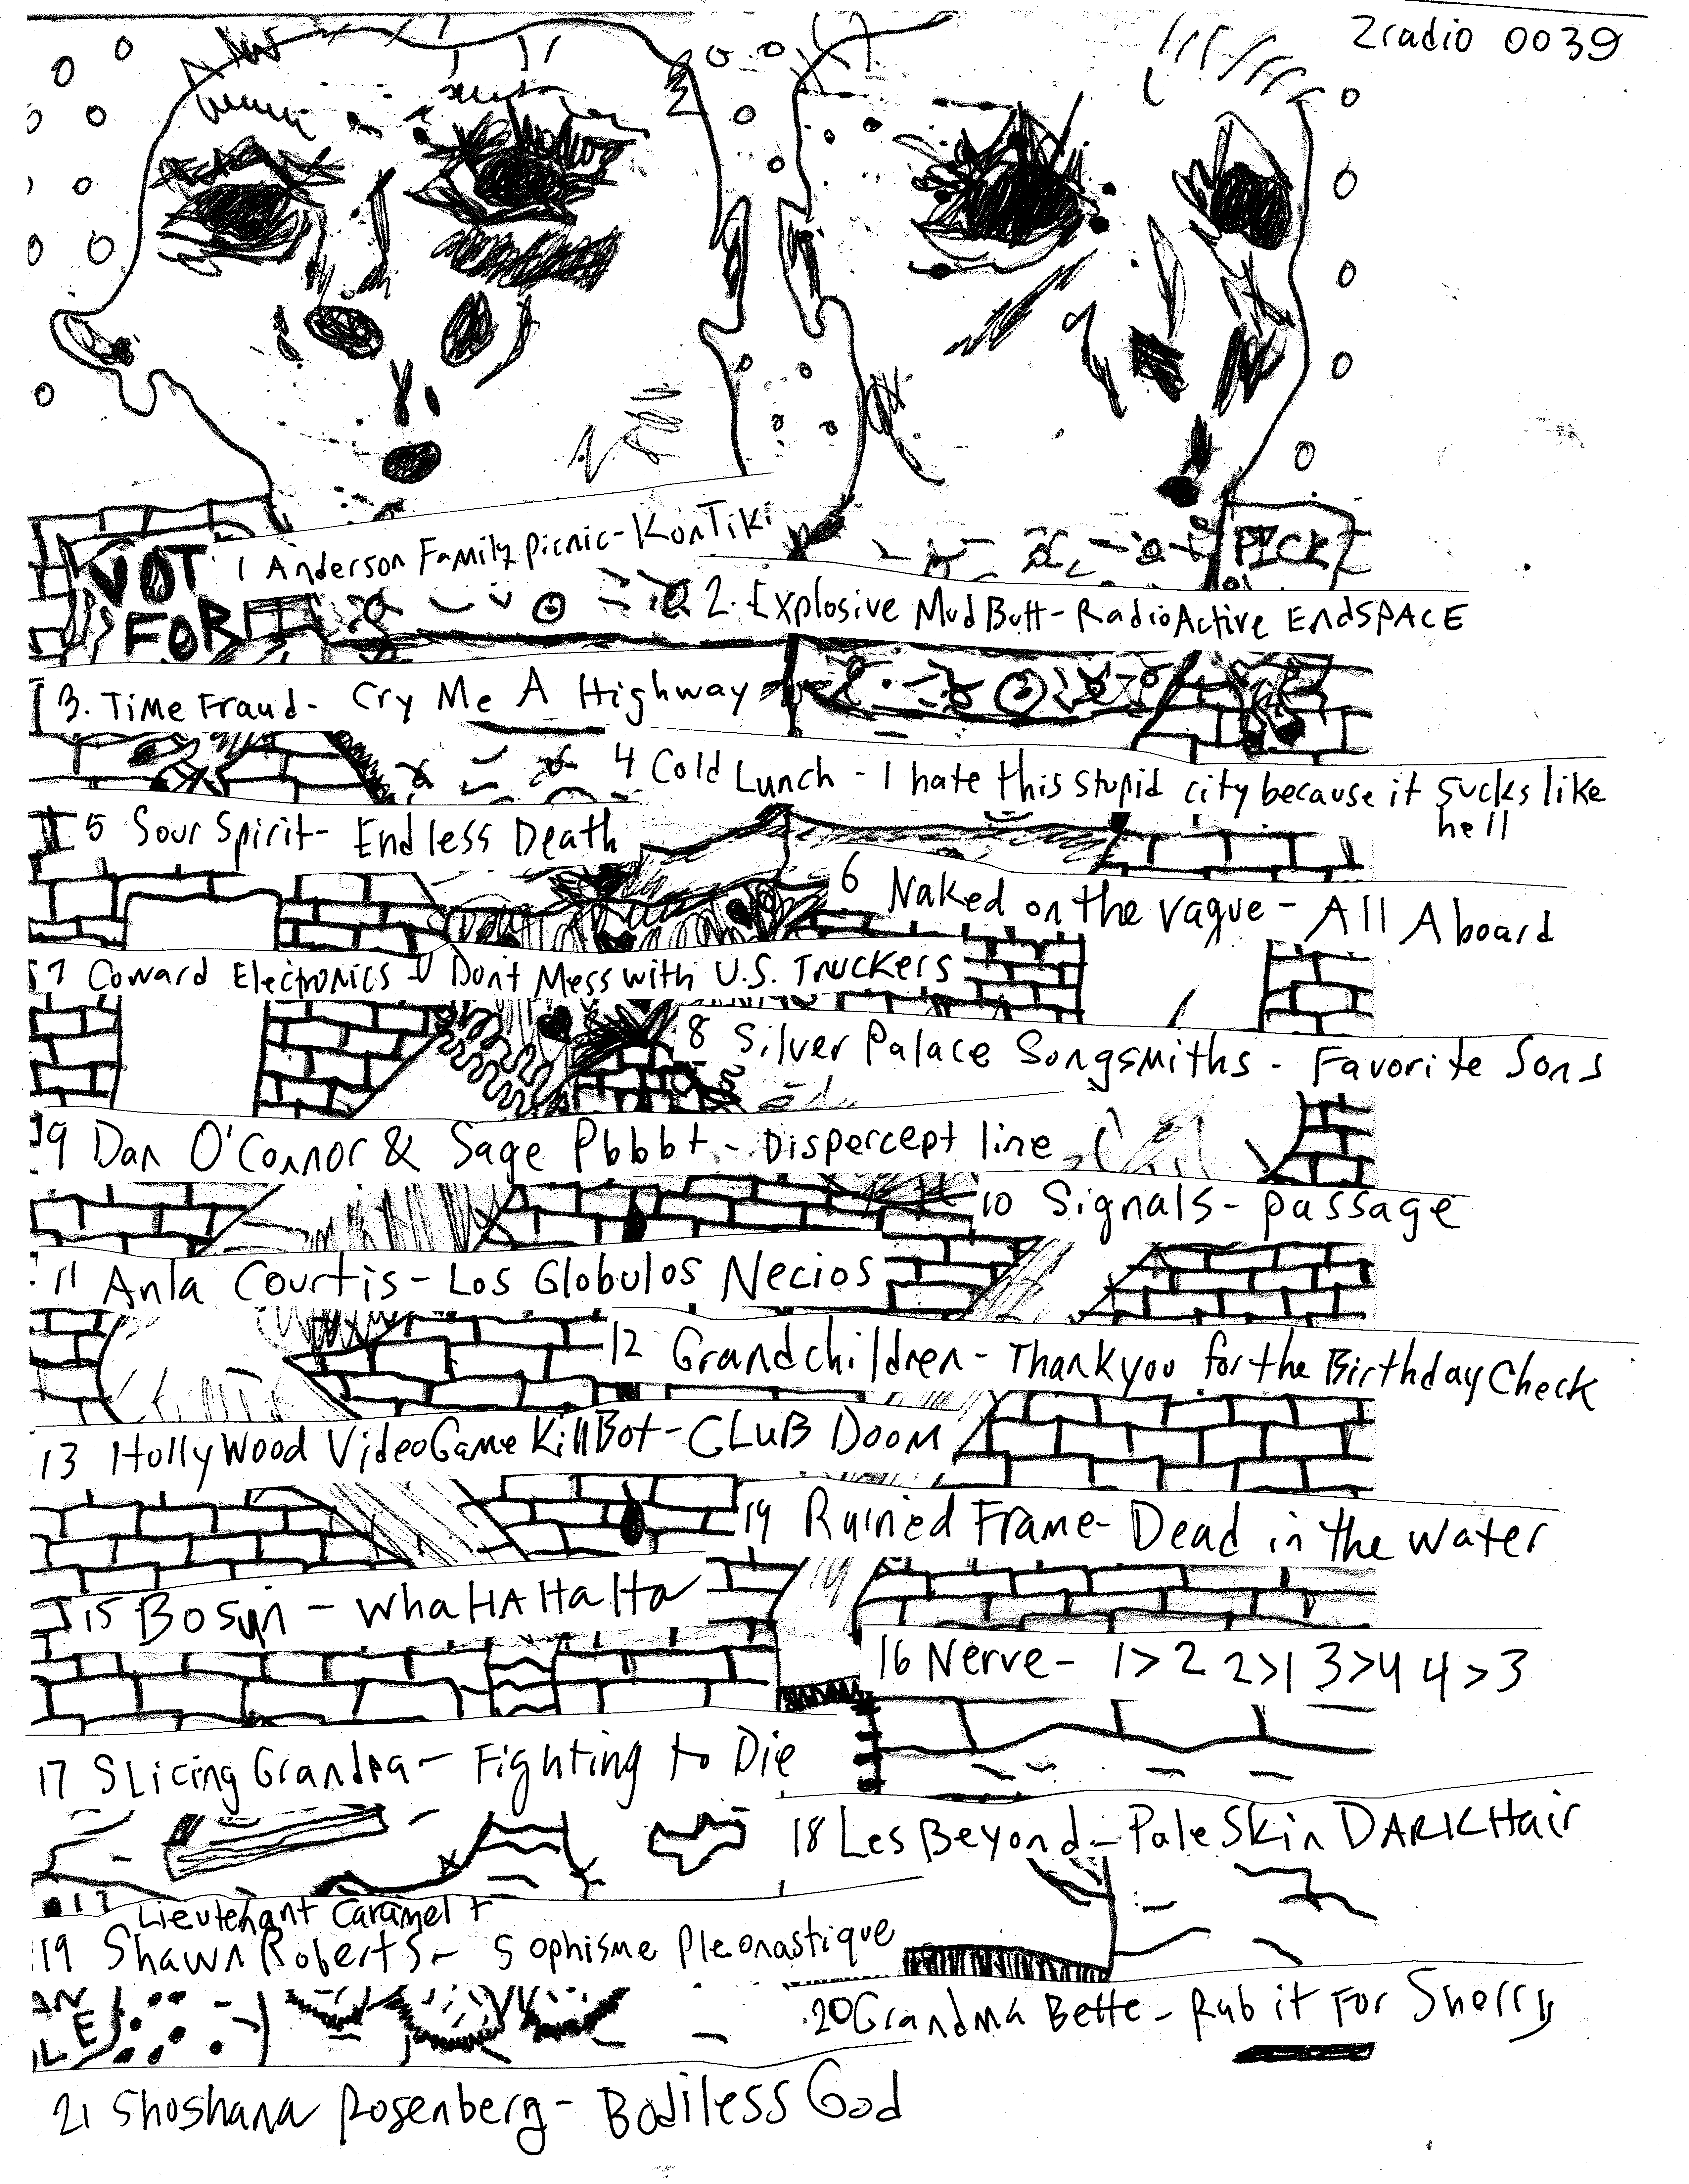 Zradio 0039
PICK
NOT
FOR
1 Anderson Family Picnic - KonTiki
2. Explosive MudButt - RadioActive EndSPACE
3. Time Fraud - Cry Me A Highway
4 Cold Lunch - I hate this stupid city because it sucks like
hell
5 Sour Spirit - Endless Death
6 Naked on the vague - All Aboard
7 Coward Electronics - Don't Mess with U.S. Truckers
8 Silver Palace Songsmiths - Favorite Sons
9 Dan O'Connor & Sage Pbbbt - Dispercept line
10 Signals - passage
11 Anla Courtis - Los Globulos Necios
12 Grandchildren - Thankyou for the Birthday Check
13 HollyWood VideoGame KillBot - CLUB DOOM
14 Ruined Frame - Dead in the water
15 Bosun - WhaHAHaHa
16 Nerve - 1>2 2>1 3>4 4>3
17 Slicing Grandpa - Fighting to Die
18 Les Beyond - Pale Skin DARK Hair
Lieutenant Caramel +
19 Shawn Roberts - Sophisme Pleonastique
20 Grandma Bette - Rub it For Sherry
21 Shoshana Rosenberg - Bodiless God